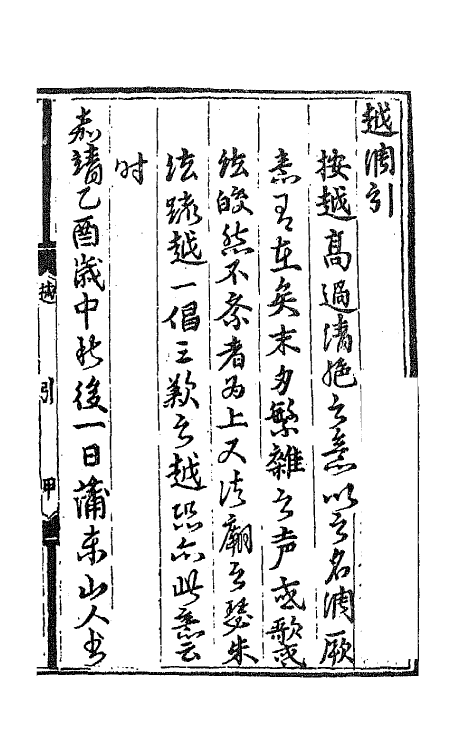 越調引
按越高過清絕之意以之名調厥
意有在矣末多繁雜之声或歌或
絃皎然不紊者为上又清廟之瑟朱
絃疏越一倡三歎之越恐亦此意云
时
嘉靖乙酉歲中秋後一日蒲東山人书
越
引
甲